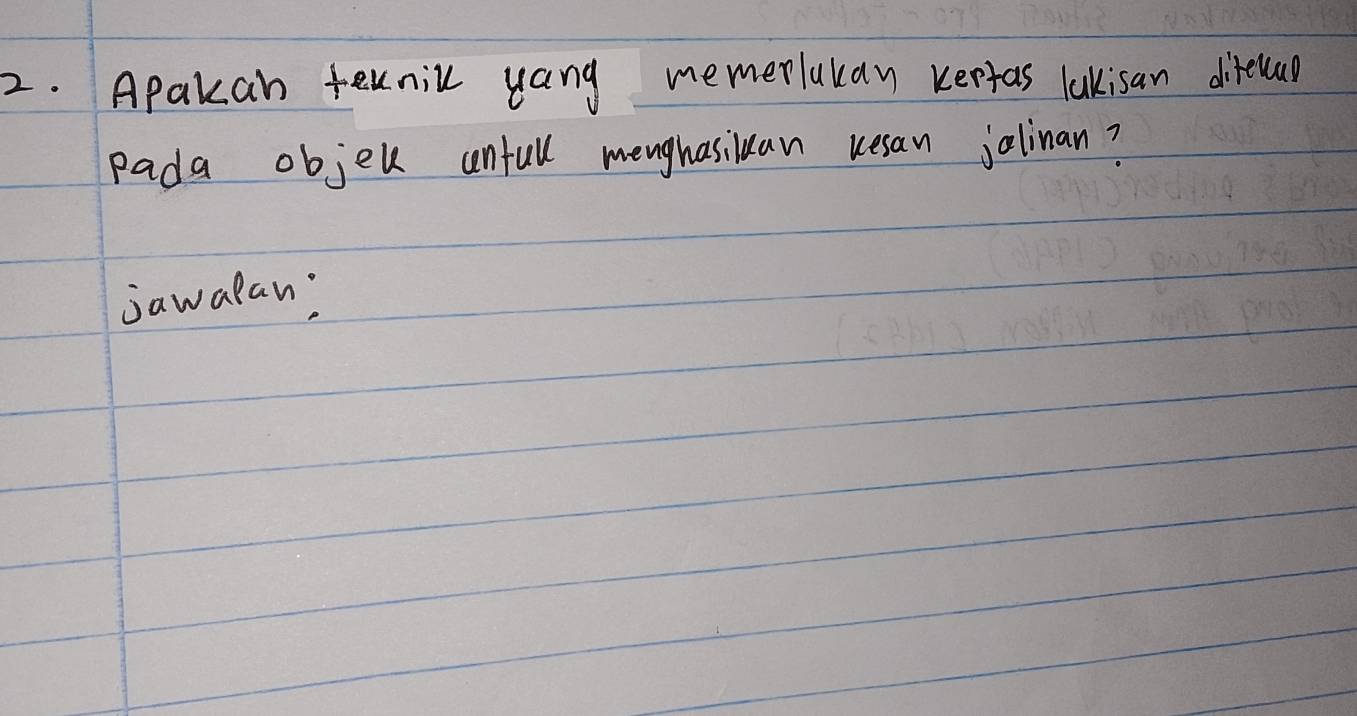 2. Apakah teknik yang memerlukan kertas lukisan ditekap
pada objek untuk menghasilkan kesan jalinan?
jawapan: